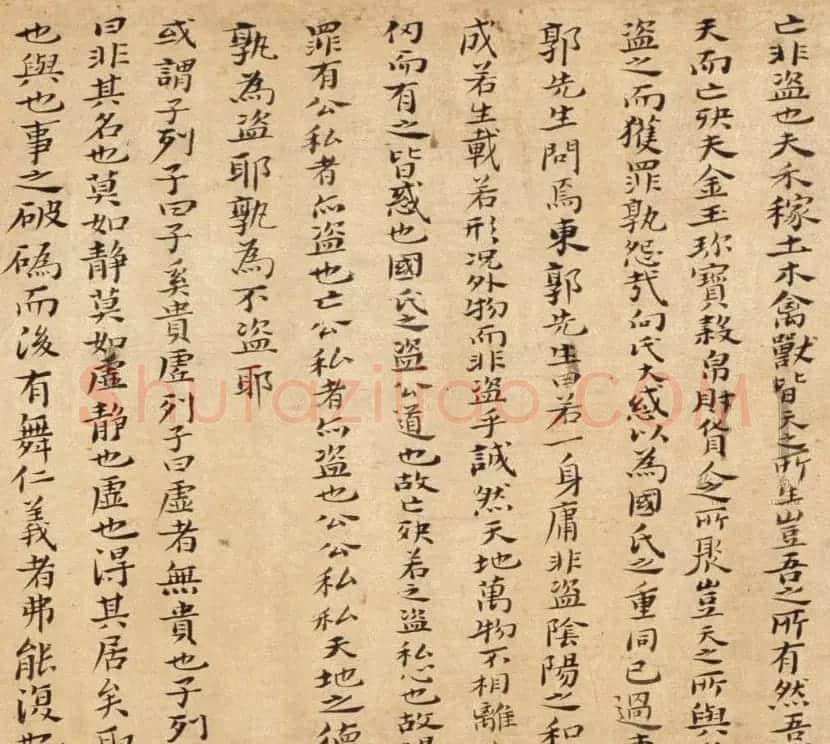 亡非盗也夫禾稼土木禽獸皆天之所生豈吾之所有然吾
天而亡殃夫金玉珎寶穀帛財貨人之所聚豈天之所與
盗之而獲罪孰怨哉向氏大惑以為國氏之重罔已過
郭先生問焉東郭先生曰若一身庸非盗陰陽之和
成若生載若形况外物而非盗乎誠然天地萬物不相離
仞而有之皆惑也國氏之盗公道也故亡殃若之盗私心也故
罪有公私者亦盗也亡公私者亦盗也公公私私天地之德
孰為盗耶孰為不盗耶
或謂子列子曰子奚貴虛列子曰虛者無貴也子列
曰非其名也莫如静莫如虛静也虛也得其居矣取
也與也事之破䃣而後有舞仁義者弗能復
Shufaziliao.COM